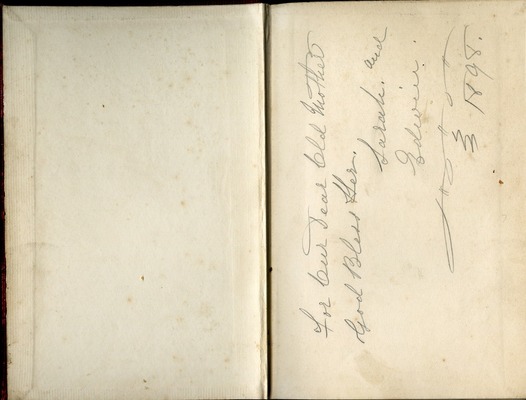 For Our Dear Old Mother
God Bless Her.
Sarah. and
Edwin.
3/3 1898.